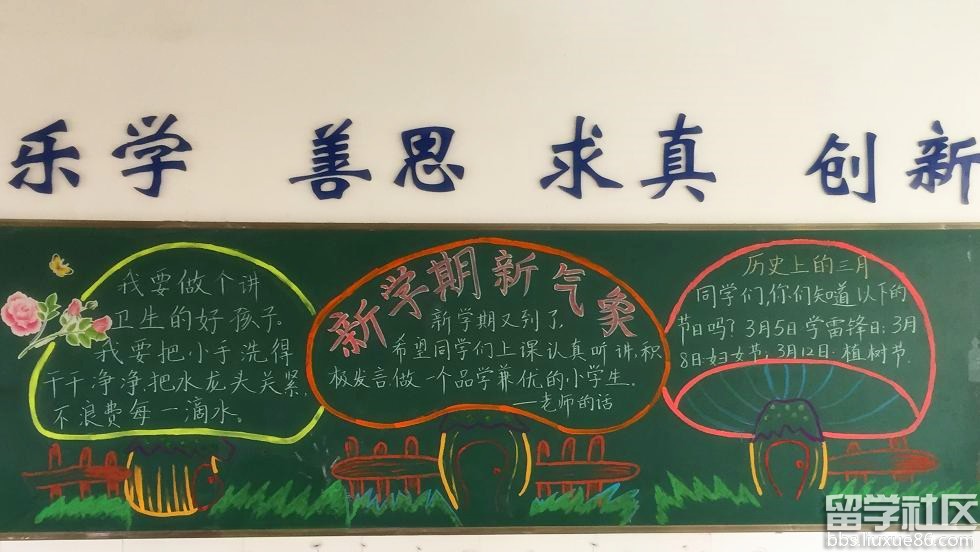 乐学 善思 求真 创新
我要做个讲
卫生的好孩子。
我要把小手洗得
干干净净,把水龙头关紧,
不浪费每一滴水。
新学期新气象
新学期又到了,
希望同学们上课认真听讲,积
极发言,做一个品学兼优的小学生。
——老师的话
历史上的三月
同学们,你们知道以下的
节日吗?3月5日学雷锋日,3月
8日妇女节,3月12日植树节.
留学社区
bbs.liuxue86.com